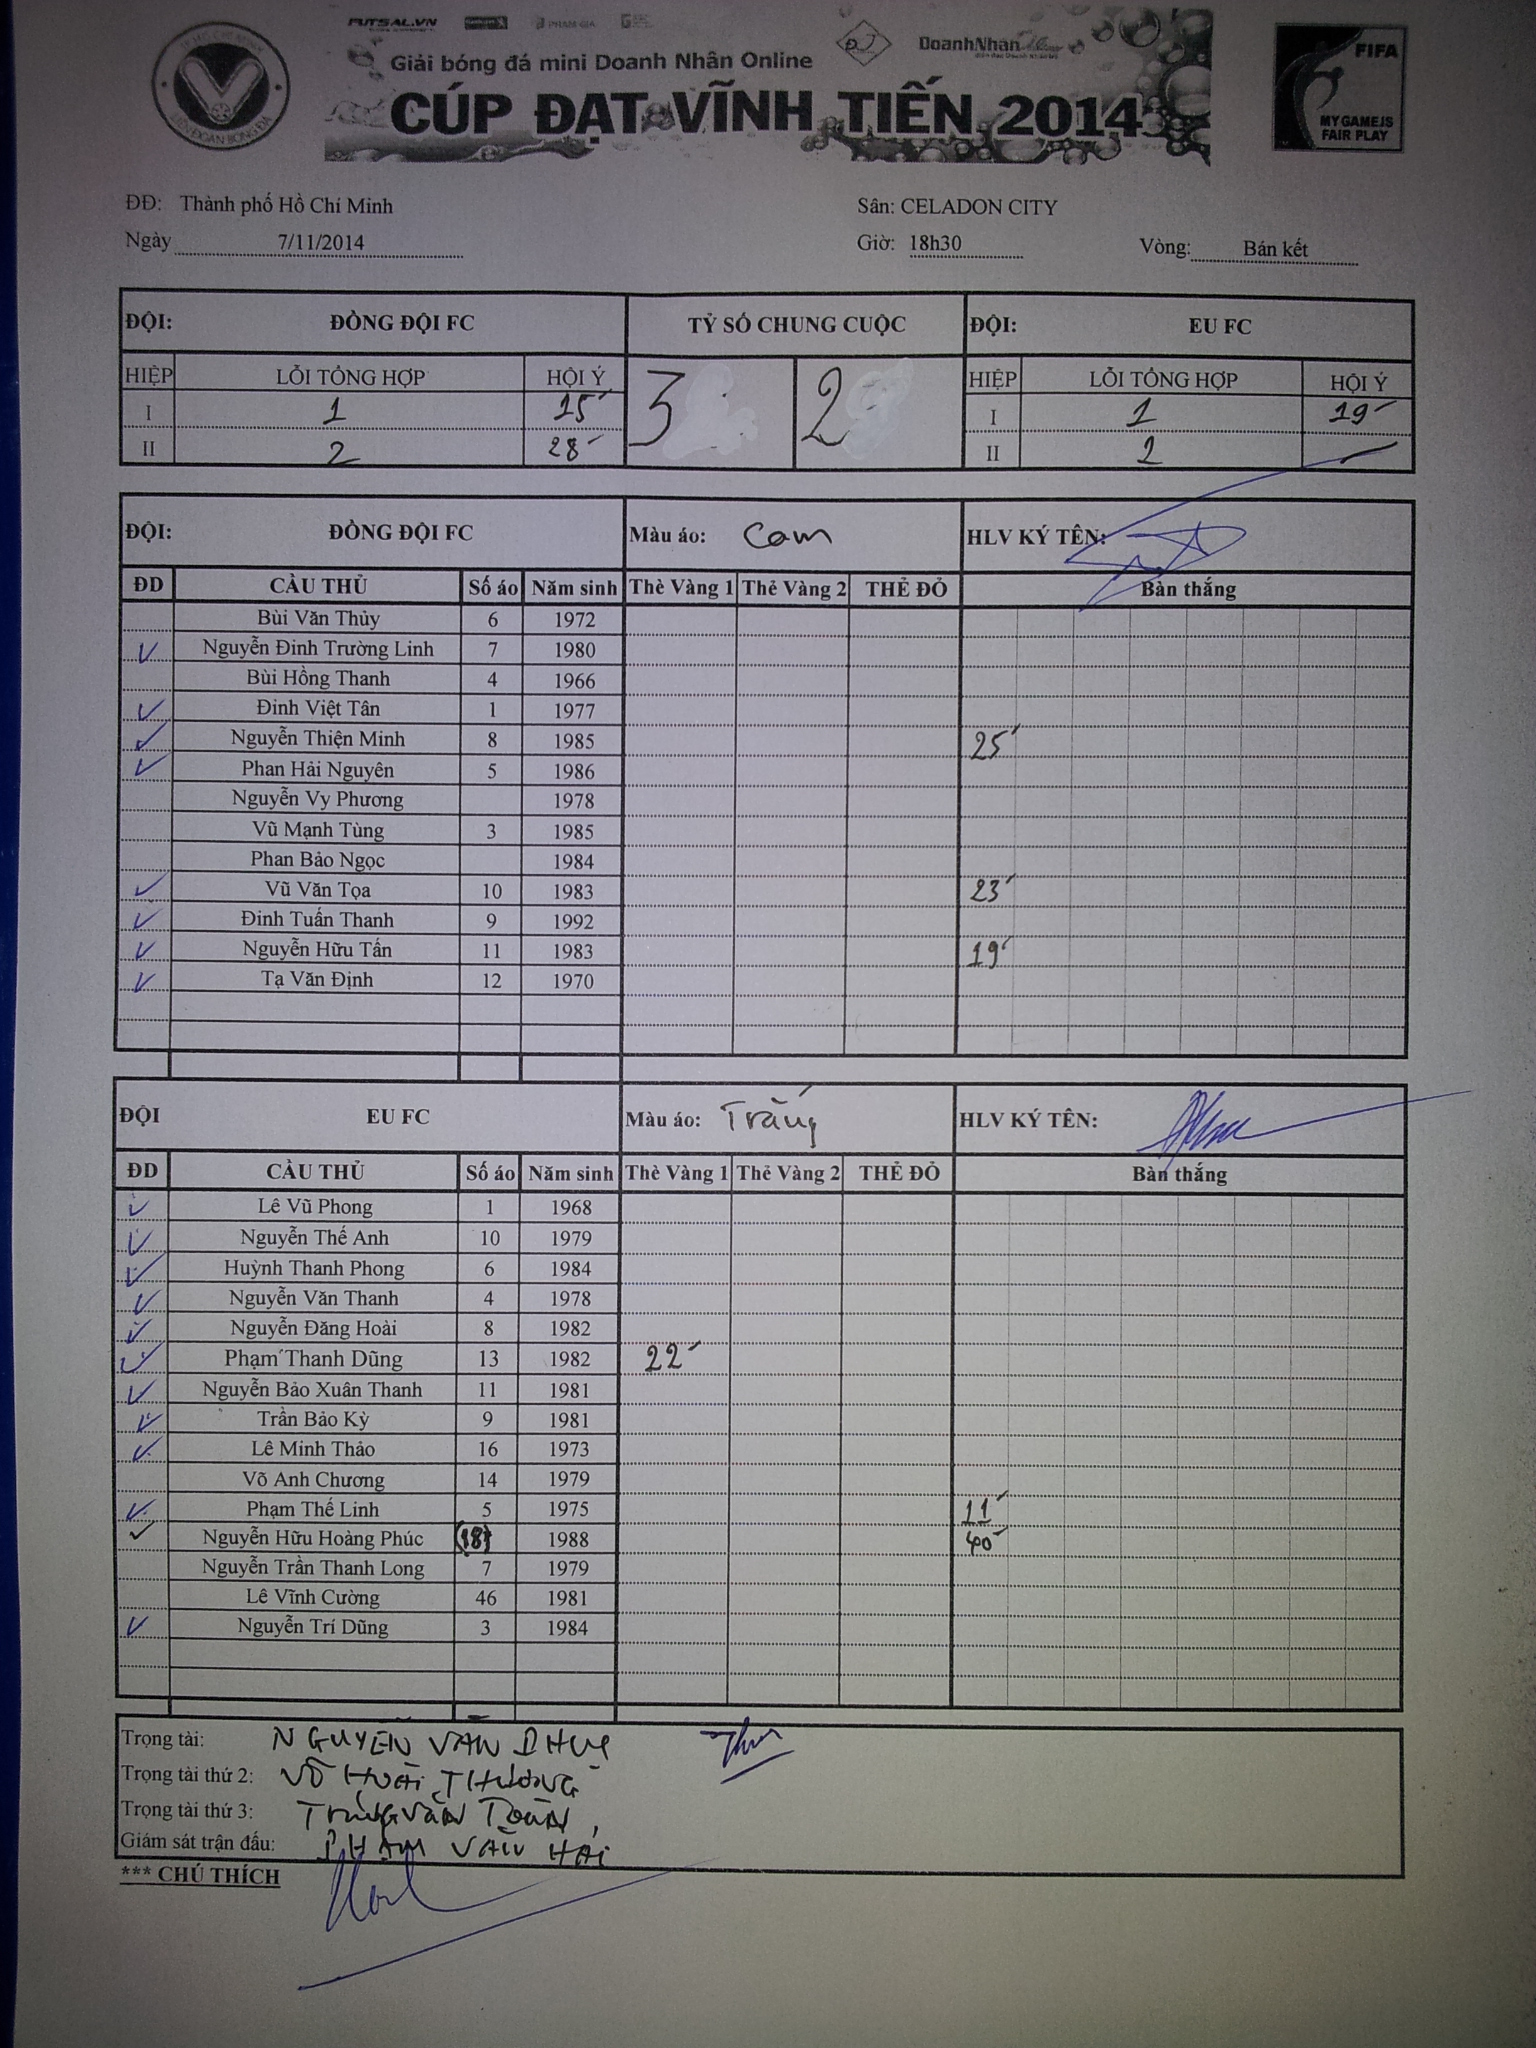 FUTSAL.VN PHAM GIA
Giải bóng đá mini Doanh Nhân Online
DoanhNhân
CÚP ĐẠT VĨNH TIẾN 2014
LIÊN ĐOÀN BÓNG ĐÁ
FIFA
MY GAME IS
FAIR PLAY
ĐĐ: Thành phố Hồ Chí Minh Sân: CELADON CITY
Ngày 7/11/2014 Giờ: 18h30 Vòng: Bán kết
ĐỘI: ĐỒNG ĐỘI FC TỶ SỐ CHUNG CUỘC ĐỘI: EU FC
HIỆP LỖI TỔNG HỢP HỘI Ý 3 2 HIỆP LỖI TỔNG HỢP HỘI Ý
I 1 15' I 1 19'
II 2 28' II 2
ĐỘI: ĐỒNG ĐỘI FC Màu áo: Cam HLV KÝ TÊN:
ĐD CẦU THỦ Số áo Năm sinh Thẻ Vàng 1 Thẻ Vàng 2 THẺ ĐỎ Bàn thắng
Bùi Văn Thủy 6 1972
✓ Nguyễn Đinh Trường Linh 7 1980
Bùi Hồng Thanh 4 1966
✓ Đinh Việt Tân 1 1977
✓ Nguyễn Thiện Minh 8 1985 25'
✓ Phan Hải Nguyên 5 1986
Nguyễn Vy Phương 1978
Vũ Mạnh Tùng 3 1985
Phan Bảo Ngọc 1984
✓ Vũ Văn Tọa 10 1983 23'
✓ Đinh Tuấn Thanh 9 1992
✓ Nguyễn Hữu Tấn 11 1983 19'
✓ Tạ Văn Định 12 1970
ĐỘI EU FC Màu áo: Trắng HLV KÝ TÊN:
ĐD CẦU THỦ Số áo Năm sinh Thẻ Vàng 1 Thẻ Vàng 2 THẺ ĐỎ Bàn thắng
✓ Lê Vũ Phong 1 1968
✓ Nguyễn Thế Anh 10 1979
✓ Huỳnh Thanh Phong 6 1984
✓ Nguyễn Văn Thanh 4 1978
✓ Nguyễn Đăng Hoài 8 1982
✓ Phạm Thanh Dũng 13 1982 22'
✓ Nguyễn Bảo Xuân Thanh 11 1981
✓ Trần Bảo Kỳ 9 1981
✓ Lê Minh Thảo 16 1973
Võ Anh Chương 14 1979
✓ Phạm Thế Linh 5 1975 11'
✓ Nguyễn Hữu Hoàng Phúc (18) 1988 40'
Nguyễn Trần Thanh Long 7 1979
Lê Vĩnh Cường 46 1981
✓ Nguyễn Trí Dũng 3 1984
Trọng tài: NGUYỄN VĂN
Trọng tài thứ 2: VÕ HOÀI THƯƠNG
Trọng tài thứ 3: VĂN
Giám sát trận đấu: PHẠM VĂN HẢI
*** CHÚ THÍCH